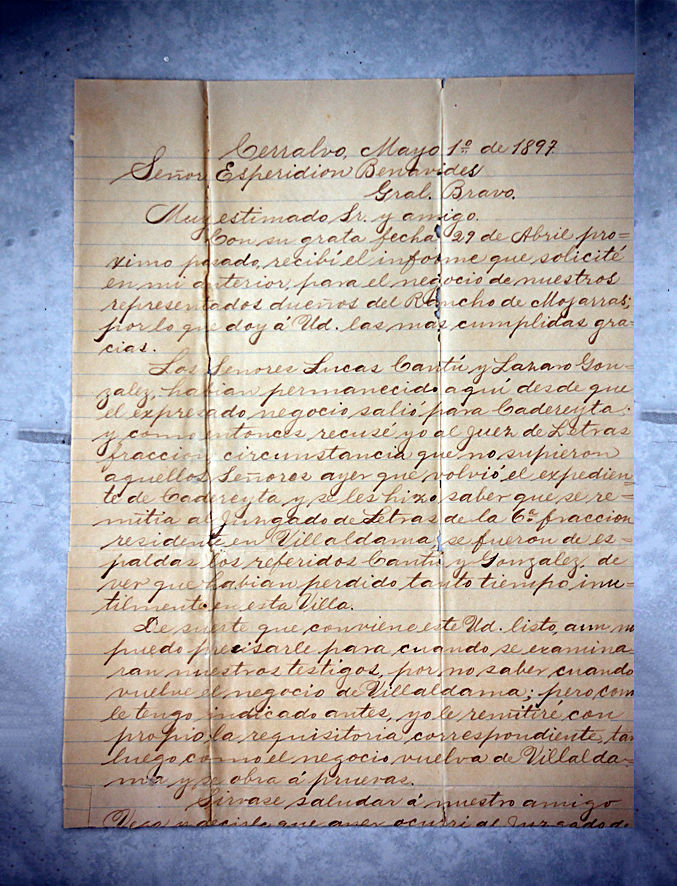 Cerralvo, Mayo 1º de 1897
Señor Esperidion Benavides
Gral. Bravo.
Muy estimado Sr. y amigo.
Con su grata fecha 29 de Abril pro=
ximo pasado, recibí el informe que solicité
en mi anterior, para el negocio de nuestros
representados dueños del Rancho de Mojarras;
por lo que doy á Ud. las mas cumplidas gra=
cias.
Los Señores Lucas Cantú y Lazaro Gon=
zalez, habian permanecido aquí desde que
el expresado negocio salió para Cadereyta.
y como entonces recusé yo al Juez de Letras
fraccion circunstancia que no supieron
aquellos Señores ayer que volvió el expedien
te de Cadereyta y se les hizo saber que se re=
mitia al Juzgado de Letras de la 6ª fraccion
residente en Villaldama, se fueron de es=
paldas los referidos Cantú y Gonzalez, de
ver que habian perdido tanto tiempo inu=
tilmente en esta Villa.
De suerte que conviene este Ud. listo, aun no
puedo precisarle para cuando se examina
ran nuestros testigos, por no saber cuando
vuelve el negocio de Villaldama; pero com
le tengo indicado antes, yo le remitiré con
propio la requisitoria correspondiente, tan
luego como el negocio vuelva de Villalda=
ma y se obra á pruevas.
Sirvase saludar á nuestro amigo
Vera y decirle que ayer ocurri al Juzgado de